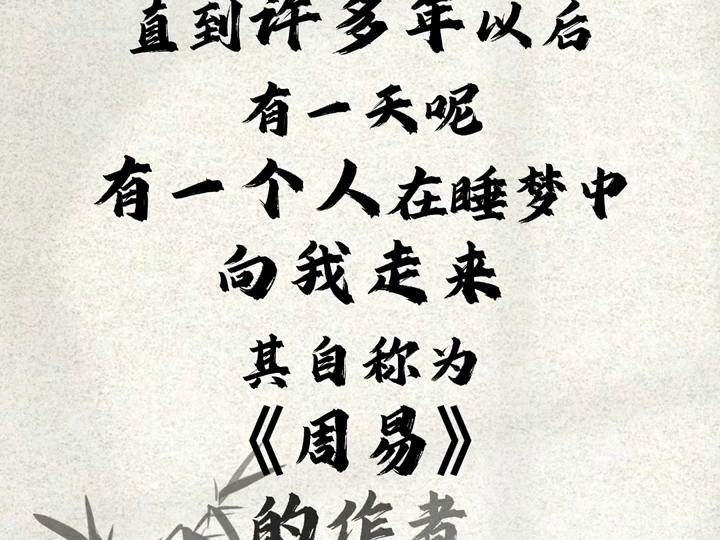 直到许多年以后
有一天呢
有一个人在睡梦中
向我走来
其自称为
《周易》
的作者